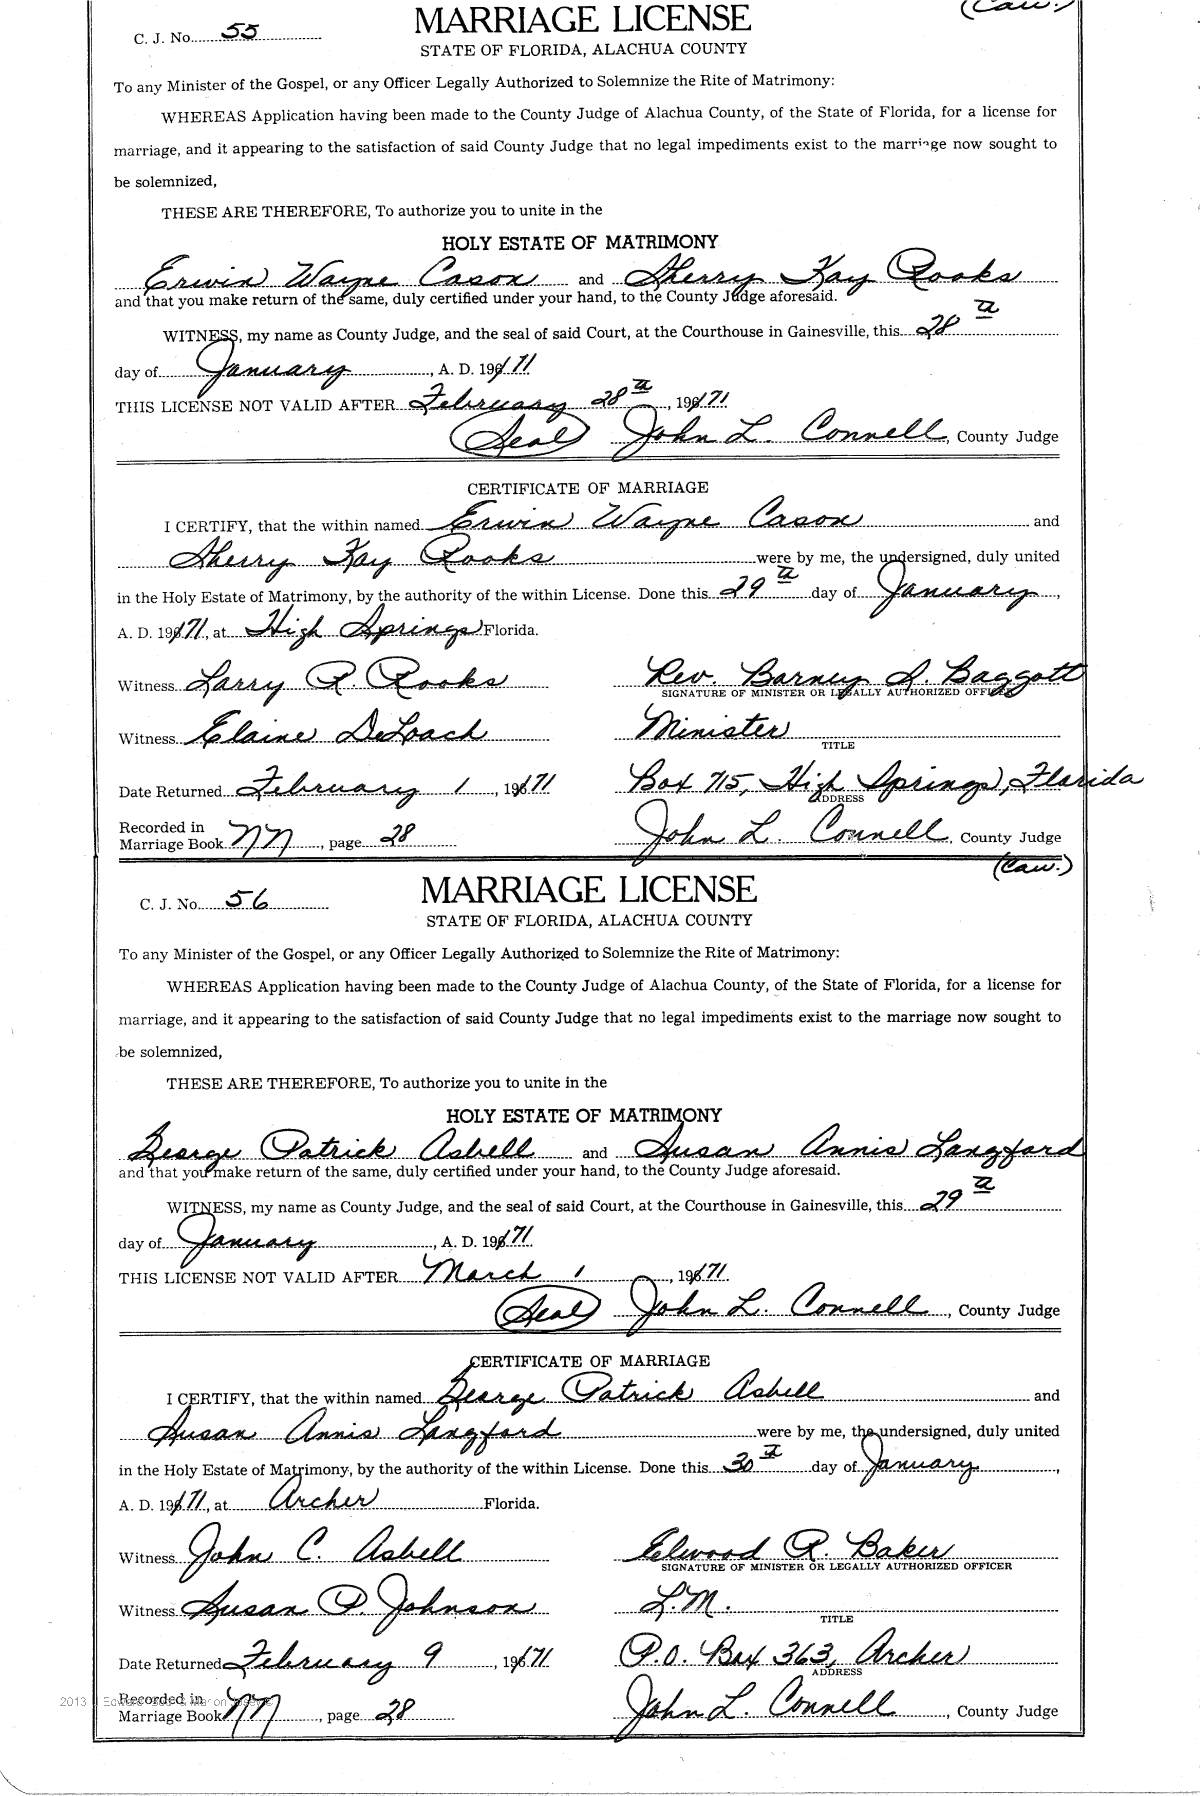 (Caw.)
C. J. No. 55
MARRIAGE LICENSE
STATE OF FLORIDA, ALACHUA COUNTY
To any Minister of the Gospel, or any Officer Legally Authorized to Solemnize the Rite of Matrimony:
WHEREAS Application having been made to the County Judge of Alachua County, of the State of Florida, for a license for
marriage, and it appearing to the satisfaction of said County Judge that no legal impediments exist to the marriage now sought to
be solemnized,
THESE ARE THEREFORE, To authorize you to unite in the
HOLY ESTATE OF MATRIMONY
Erwin Wayne Cason and Sherry Kay Rooks
and that you make return of the same, duly certified under your hand, to the County Judge aforesaid.
WITNESS, my name as County Judge, and the seal of said Court, at the Courthouse in Gainesville, this 28th
day of January, A. D. 1971
THIS LICENSE NOT VALID AFTER February 28th, 1971
(Seal) John L. Connell, County Judge
CERTIFICATE OF MARRIAGE
I CERTIFY, that the within named Erwin Wayne Cason and
Sherry Kay Rooks were by me, the undersigned, duly united
in the Holy Estate of Matrimony, by the authority of the within License. Done this 29th day of January,
A. D. 1971, at High Springs Florida.
Witness Larry R. Rooks Rev. Barney L. Baggott
SIGNATURE OF MINISTER OR LEGALLY AUTHORIZED OFFICER
Witness Elaine DeLoach Minister
TITLE
Date Returned February 1, 1971 Box 715, High Springs, Florida
ADDRESS
Recorded in
Marriage Book NN, page 28 John L. Connell, County Judge
(Caw.)
C. J. No. 56
MARRIAGE LICENSE
STATE OF FLORIDA, ALACHUA COUNTY
To any Minister of the Gospel, or any Officer Legally Authorized to Solemnize the Rite of Matrimony:
WHEREAS Application having been made to the County Judge of Alachua County, of the State of Florida, for a license for
marriage, and it appearing to the satisfaction of said County Judge that no legal impediments exist to the marriage now sought to
be solemnized,
THESE ARE THEREFORE, To authorize you to unite in the
HOLY ESTATE OF MATRIMONY
George Patrick Asbell and Susan Annis Langford
and that you make return of the same, duly certified under your hand, to the County Judge aforesaid.
WITNESS, my name as County Judge, and the seal of said Court, at the Courthouse in Gainesville, this 29th
day of January, A. D. 1971
THIS LICENSE NOT VALID AFTER March 1, 1971
(Seal) John L. Connell, County Judge
CERTIFICATE OF MARRIAGE
I CERTIFY, that the within named George Patrick Asbell and
Susan Annis Langford were by me, the undersigned, duly united
in the Holy Estate of Matrimony, by the authority of the within License. Done this 30th day of January,
A. D. 1971, at Archer Florida.
Witness John C. Asbell Elwood R. Baker
SIGNATURE OF MINISTER OR LEGALLY AUTHORIZED OFFICER
Witness Susan P. Johnson L.M.
TITLE
Date Returned February 9, 1971 P.O. Box 363, Archer
ADDRESS
2013
Recorded in
Marriage Book NN, page 28 John L. Connell, County Judge